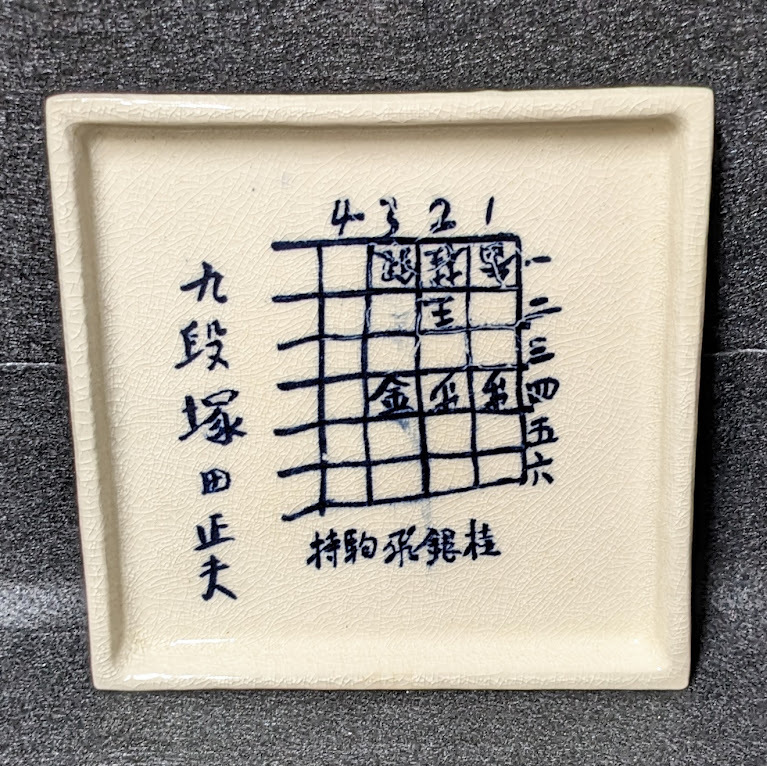 4 3 2 1
銀 桂 香 一
王 二
三
金 四
五
六
持駒飛銀桂
九段塚田正夫